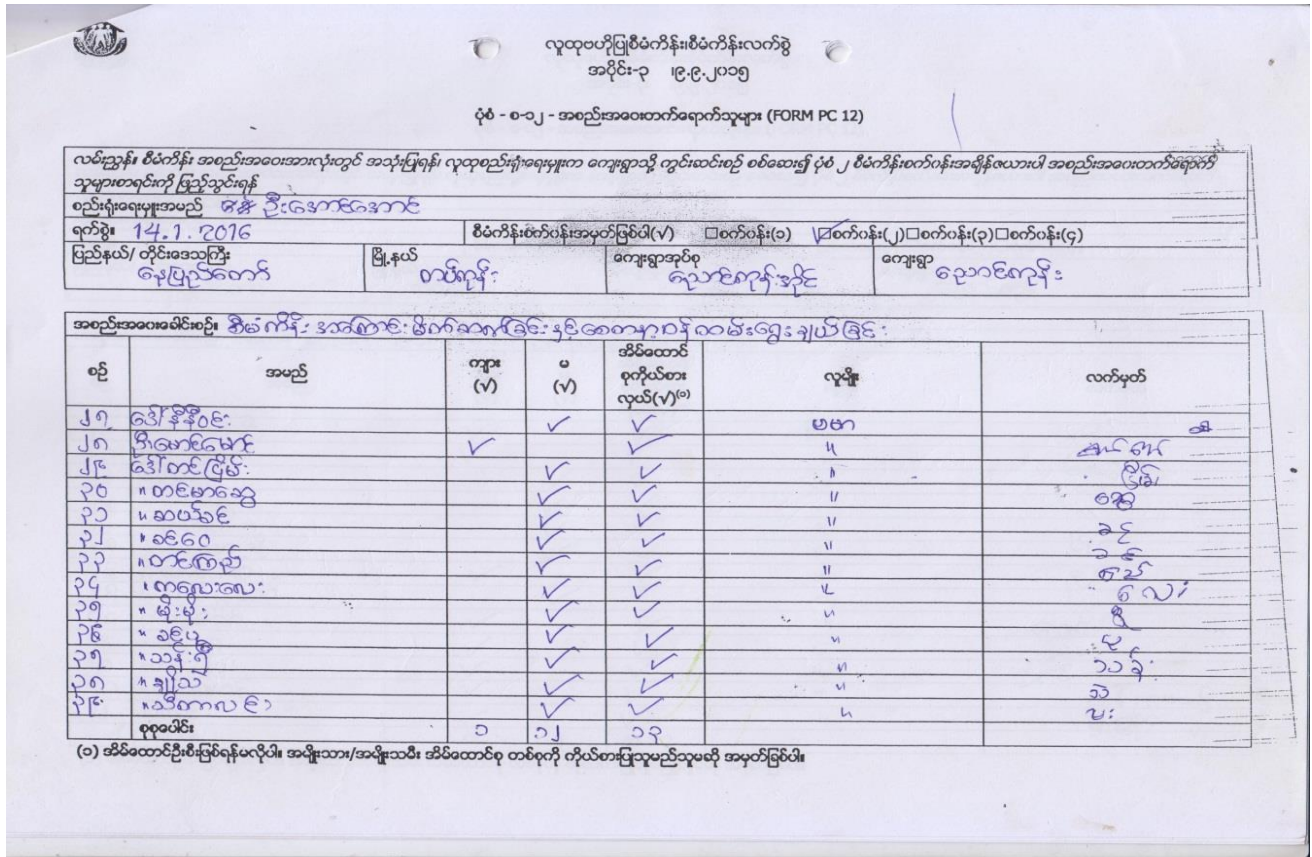 လူထုဗဟိုပြုစီမံကိန်း၊စီမံကိန်းလက်စွဲ
အပိုင်း-၃ ၊၉.၉.၂၀၁၅
ပုံစံ - စ-၁၂ - အစည်းအဝေးတက်ရောက်သူများ (FORM PC 12)
လမ်းညွှန်။ စီမံကိန်း အစည်းအဝေးအားလုံးတွင် အသုံးပြုရန်၊ လူထုစည်းရုံးရေးမှူးက ကျေးရွာသို့ ကွင်းဆင်းစဉ် စစ်ဆေး၍ ပုံစံ ၂ စီမံကိန်းစက်ဝန်းအချိန်ဇယားပါ အစည်းအဝေးတက်ရောက်
သူများစာရင်းကို ဖြည့်သွင်းရန်
စည်းရုံးရေးမှူးအမည် ဦးအောင်အောင်
ရက်စွဲ။ 14.1.2016 စီမံကိန်းစက်ဝန်းအမှတ်ဖြစ်ပါ(√) □စက်ဝန်း(၁) ☑စက်ဝန်း(၂)□စက်ဝန်း(၃)□စက်ဝန်း(၄)
ပြည်နယ်/ တိုင်းဒေသကြီး မြို့နယ် ကျေးရွာအုပ်စု ကျေးရွာ
နေပြည်တော် တပ်ကုန်း ညောင်ကုန်းအိုင် ညောင်ကုန်း
အစည်းအဝေးခေါင်းစဉ်။ စီမံကိန်းအကြောင်းမိတ်ဆက်ခြင်းနှင့်စေတနာ့ဝန်ထမ်းရွေးချယ်ခြင်း
စဉ် အမည် ကျား (√) မ (√) အိမ်ထောင်စုကိုယ်စားလှယ်(√)⁽¹⁾ လူမျိုး လက်မှတ်
၂၇ ဒေါ်နီနီဝင်း ✓ ✓ ဗမာ
၂၈ ဦးမောင်မောင် ✓ ✓ "
၂၉ ဒေါ်တင်ငြိမ်း ✓ ✓ " ငြိမ်း
၃၀ " တင်မာဆွေ ✓ ✓ " ဆွေ
၃၁ " ဆယ်ခင် ✓ ✓ " ခင်
၃၂ " ခင်ဝေ ✓ ✓ " ခင်
၃၃ " တင်ကြည် ✓ ✓ " ကြည်
၃၄ " ကလေးလေး ✓ ✓ " လေး
၃၅ " မိုးမိုး ✓ ✓ "
၃၆ " ခင်ပု ✓ ✓ " ပု
၃၇ " သန်းရီ ✓ ✓ " သန်း
၃၈ " ချိုသဲ ✓ ✓ " သဲ
၃၉ ✓ ✓ "
စုစုပေါင်း ၁ ၁၂ ၁၃
(၁) အိမ်ထောင်ဦးစီးဖြစ်ရန်မလိုပါ။ အမျိုးသား/အမျိုးသမီး အိမ်ထောင်စု တစ်စုကို ကိုယ်စားပြုသူမည်သူမဆို အမှတ်ခြစ်ပါ။